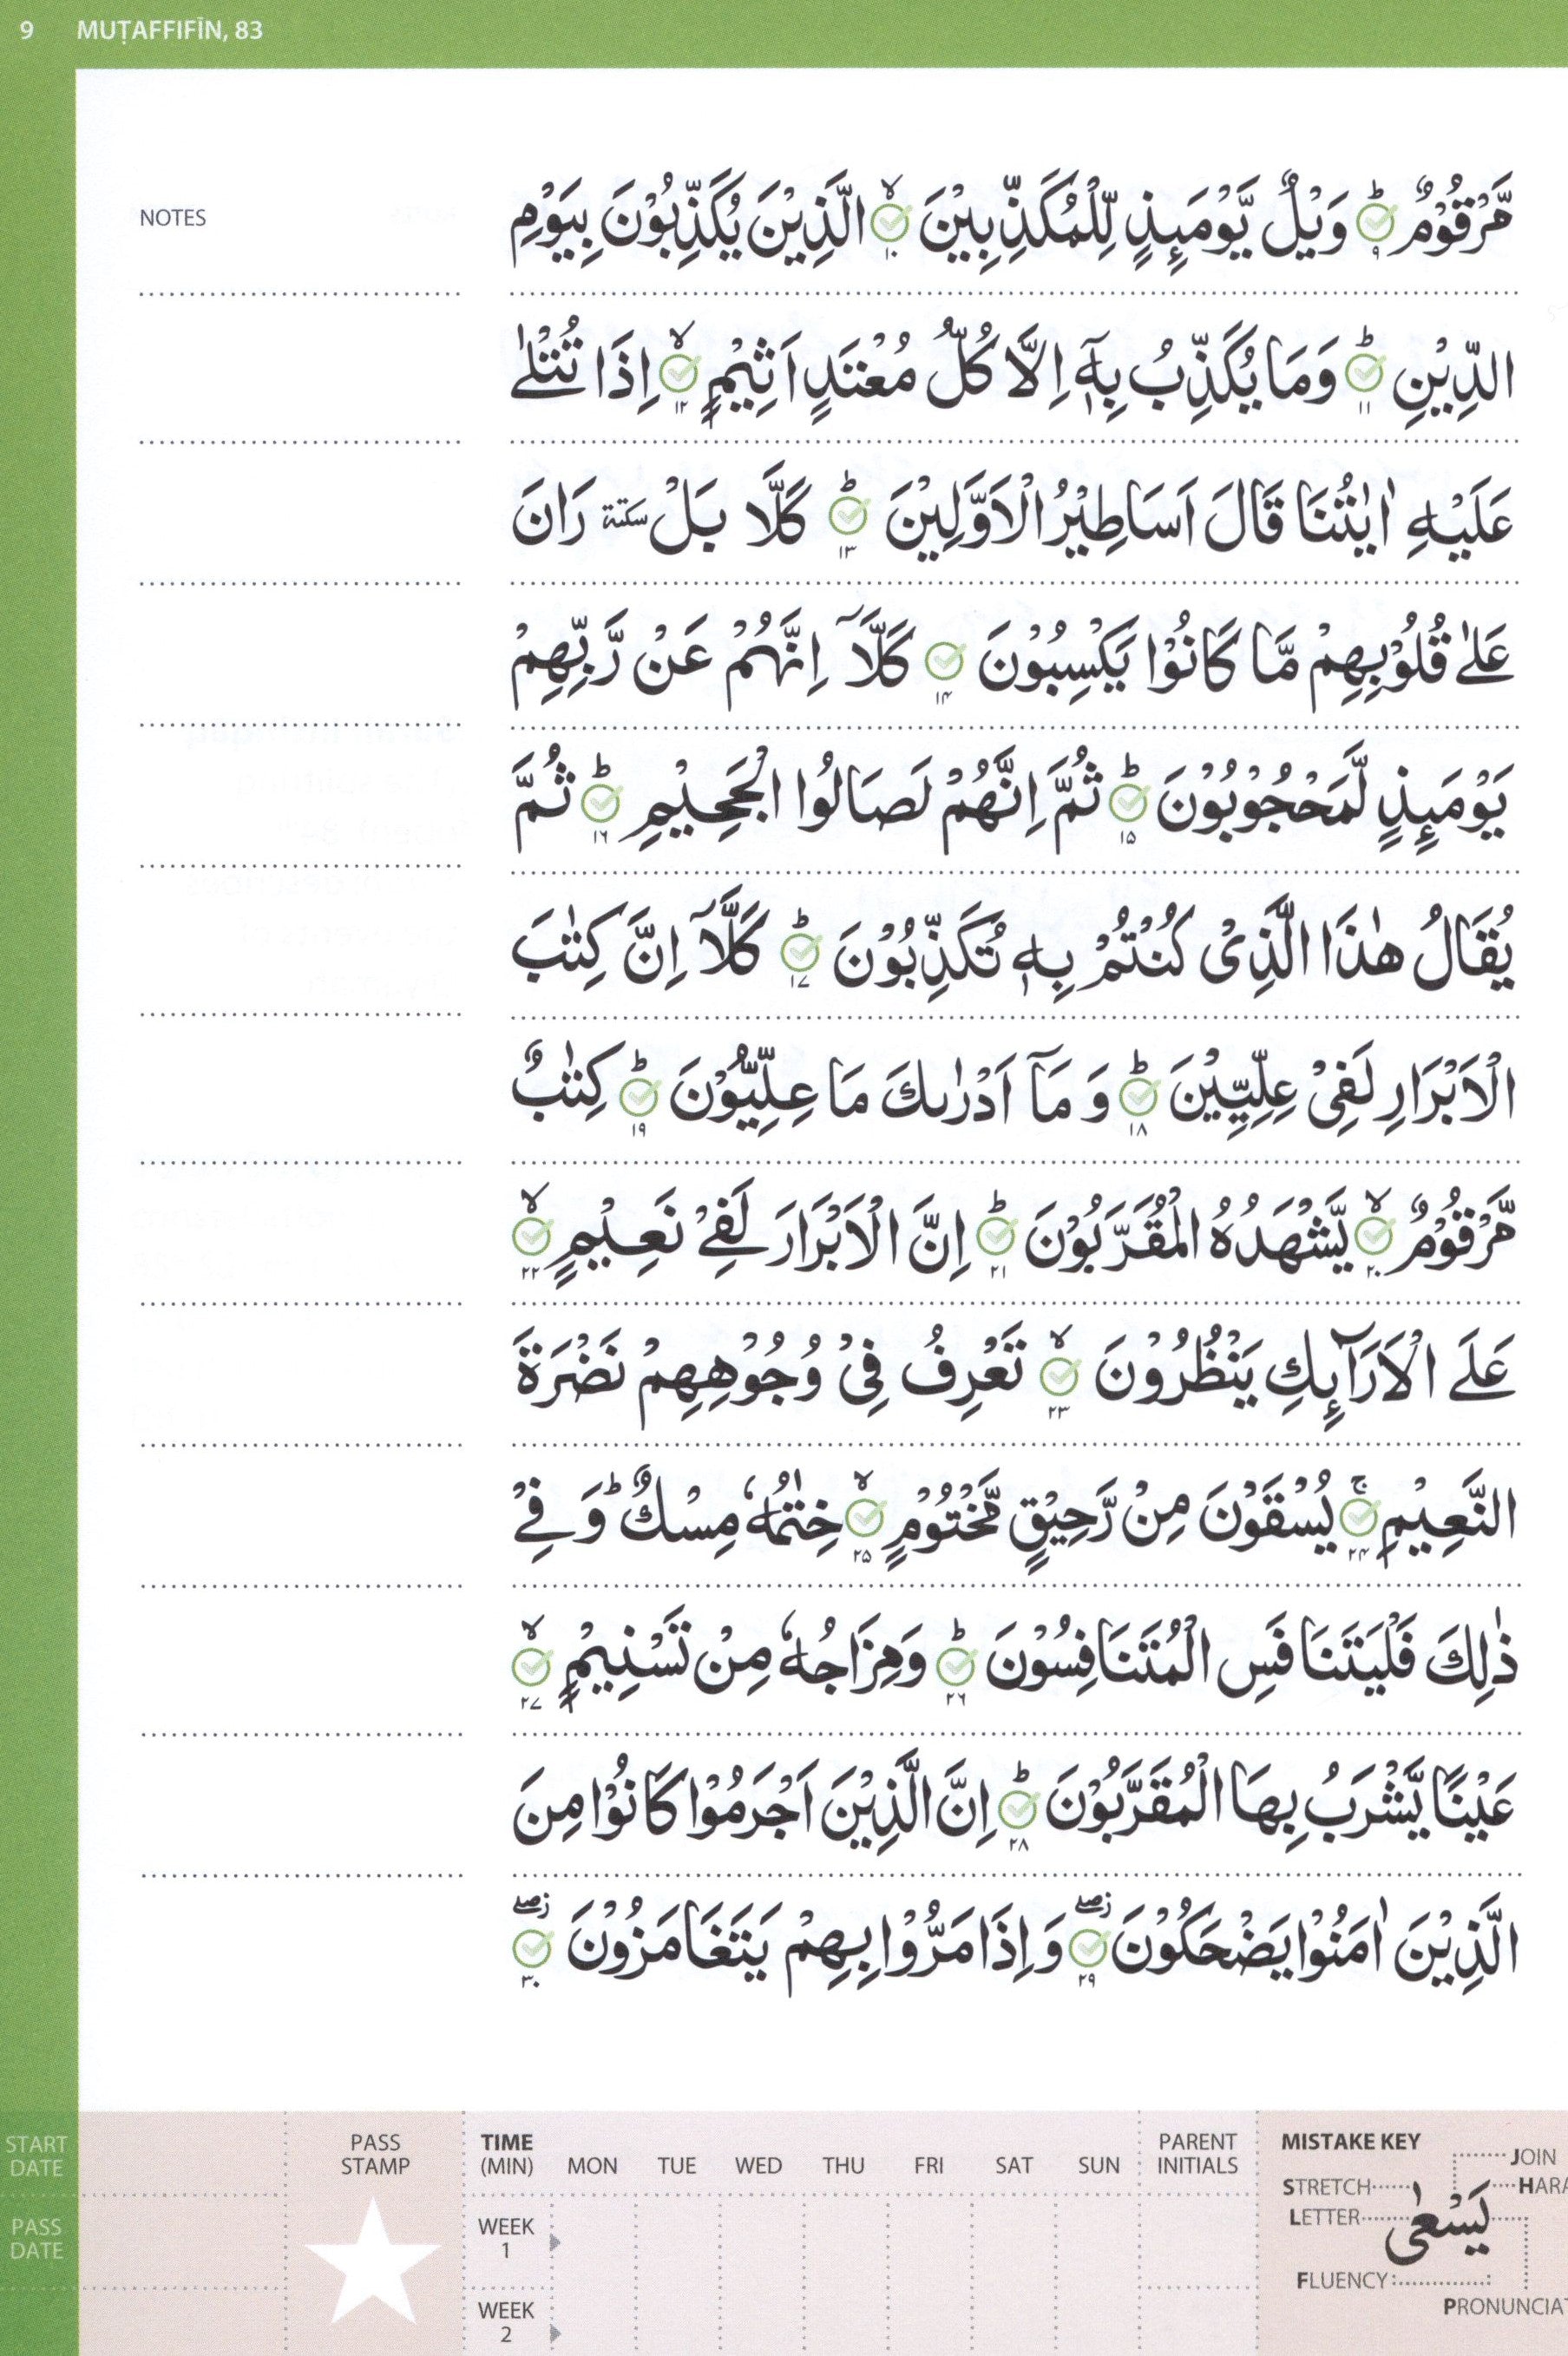 9 MUṬAFFIFĪN, 83
NOTES
مَّرْقُوْمٌ ؕ۹ وَيْلٌ يَّوْمَىِٕذٍ لِّلْمُكَذِّبِيْنَ ۙ۱۰ الَّذِيْنَ يُكَذِّبُوْنَ بِيَوْمِ
الدِّيْنِ ؕ۱۱ وَمَا يُكَذِّبُ بِهٖٓ اِلَّا كُلُّ مُعْتَدٍ اَثِيْمٍ ۙ۱۲ اِذَا تُتْلٰى
عَلَيْهِ اٰيٰتُنَا قَالَ اَسَاطِيْرُ الْاَوَّلِيْنَ ؕ۱۳ كَلَّا بَلْ سكتة رَانَ
عَلٰى قُلُوْبِهِمْ مَّا كَانُوْا يَكْسِبُوْنَ ۱۴ كَلَّاۤ اِنَّهُمْ عَنْ رَّبِّهِمْ
يَوْمَىِٕذٍ لَّمَحْجُوْبُوْنَ ؕ۱۵ ثُمَّ اِنَّهُمْ لَصَالُوا الْجَحِيْمِ ؕ۱۶ ثُمَّ
يُقَالُ هٰذَا الَّذِىْ كُنْتُمْ بِهٖ تُكَذِّبُوْنَ ؕ۱۷ كَلَّاۤ اِنَّ كِتٰبَ
الْاَبْرَارِ لَفِىْ عِلِّيِّيْنَ ؕ۱۸ وَ مَاۤ اَدْرٰىكَ مَا عِلِّيُّوْنَ ؕ۱۹ كِتٰبٌ
مَّرْقُوْمٌ ۙ۲۰ يَّشْهَدُهُ الْمُقَرَّبُوْنَ ؕ۲۱ اِنَّ الْاَبْرَارَ لَفِىْ نَعِيْمٍ ۙ۲۲
عَلَى الْاَرَآىِٕكِ يَنْظُرُوْنَ ۙ۲۳ تَعْرِفُ فِىْ وُجُوْهِهِمْ نَضْرَةَ
النَّعِيْمِ ۚ۲۴ يُسْقَوْنَ مِنْ رَّحِيْقٍ مَّخْتُوْمٍ ۙ۲۵ خِتٰمُهٗ مِسْكٌ ؕ وَفِىْ
ذٰلِكَ فَلْيَتَنَافَسِ الْمُتَنَافِسُوْنَ ؕ۲۶ وَمِزَاجُهٗ مِنْ تَسْنِيْمٍ ۙ۲۷
عَيْنًا يَّشْرَبُ بِهَا الْمُقَرَّبُوْنَ ؕ۲۸ اِنَّ الَّذِيْنَ اَجْرَمُوْا كَانُوْا مِنَ
الَّذِيْنَ اٰمَنُوْا يَضْحَكُوْنَ ۖز۲۹ وَاِذَا مَرُّوْا بِهِمْ يَتَغَامَزُوْنَ ۖز۳۰
START DATE
PASS DATE
PASS STAMP
TIME (MIN) MON TUE WED THU FRI SAT SUN PARENT INITIALS
WEEK 1
WEEK 2
MISTAKE KEY
JOIN
STRETCH
HARA
LETTER
يَسْعٰى
FLUENCY
PRONUNCIAT